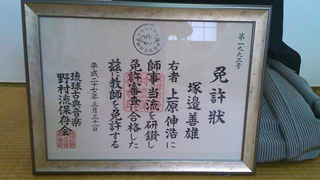 第一九三号
免許状
塚邉善雄
右者上原伸浩に
師事当流を研鑽し
免許審査に合格した
茲に教師を免許する
平成二十七年三月三十一日
琉球古典音楽
野村流保存会